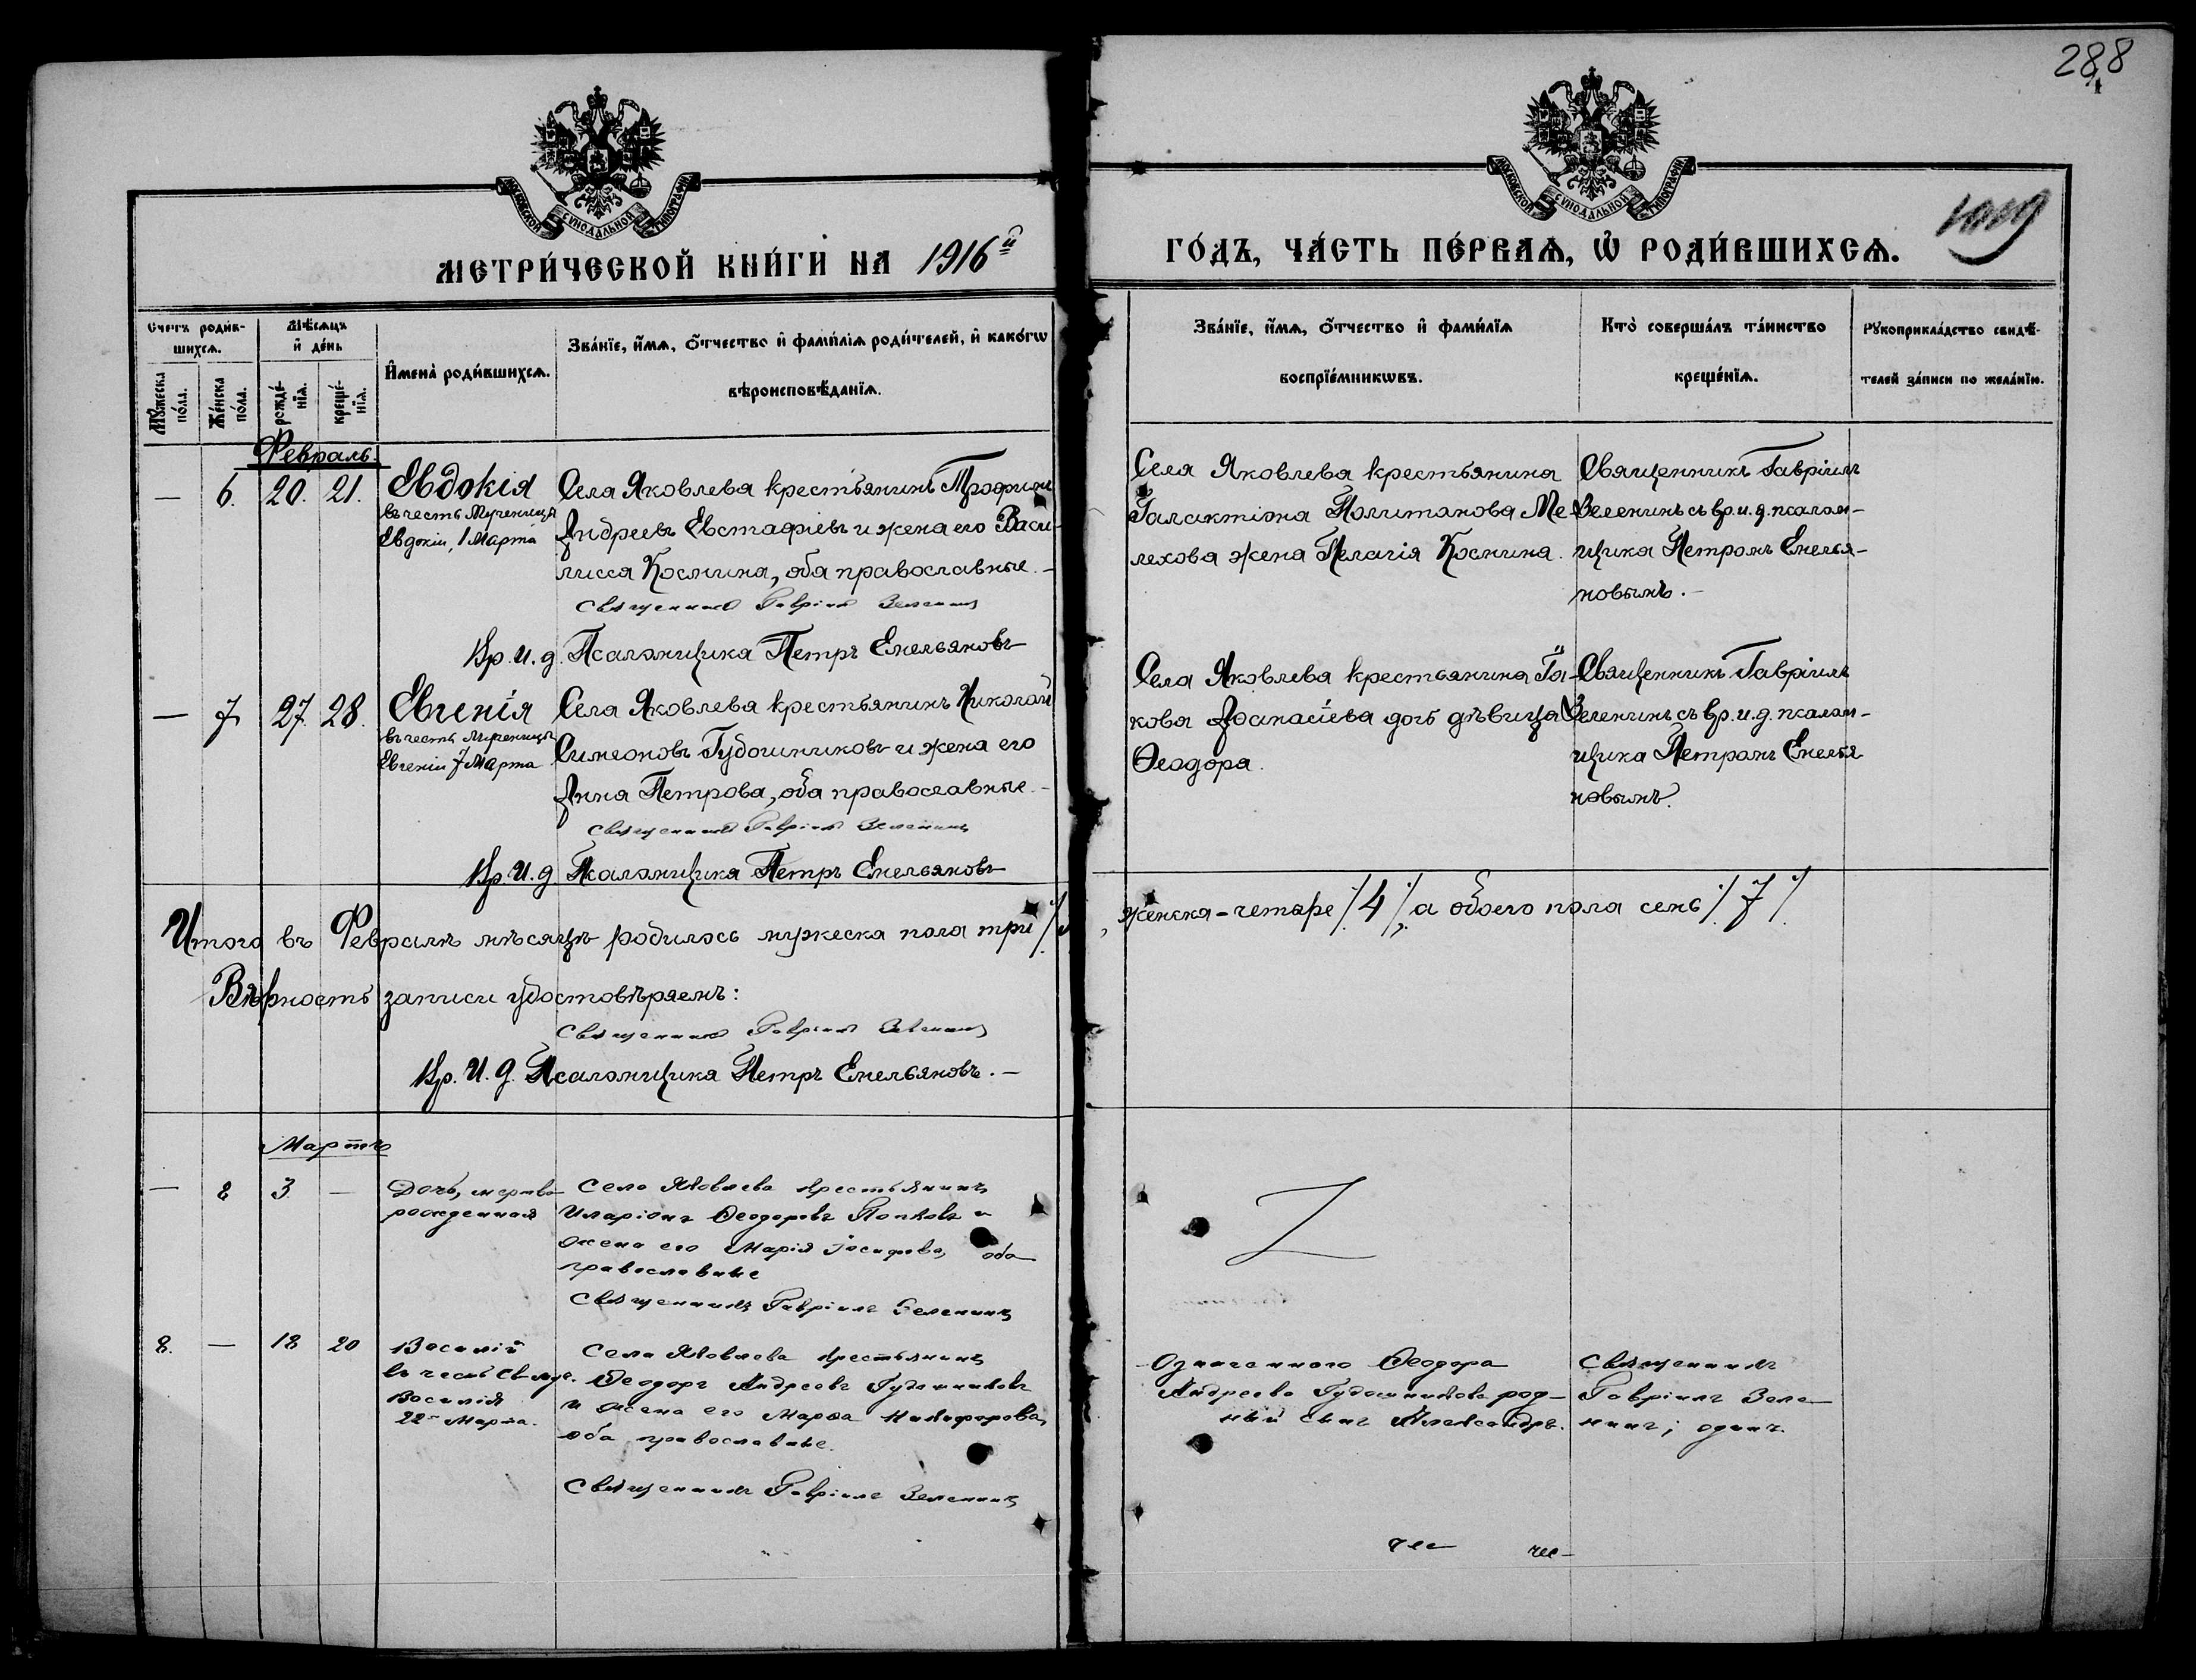 288
МОСКОВСКОЙ СѴНОДАЛЬНОЙ ТИПОГРАФІИ
МОСКОВСКОЙ СѴНОДАЛЬНОЙ ТИПОГРАФІИ
МЕТРИ́ЧЕСКОЙ КНИ́ГИ НА 1916й
ГО́ДЪ, ЧА́СТЬ ПЕ́РВАѦ, Ѽ РОДИ́ВШИХСѦ.
Счетъ роди́в-
шихсѧ.
Мꙋжеска по́ла.
Же́нска по́ла.
Мѣ́сѧцъ
и҆ де́нь
рожде́-
нїѧ.
креще́-
нїѧ.
И҆мена̀ роди́вшихсѧ.
Зва́нїе, и҆́мѧ, ѻ҆́тчество и҆ фами́лїѧ роди́телей, и҆ како́гѡ
вѣроисповѣ́данїѧ.
Зва́нїе, и҆́мѧ, ѻ҆́тчество и҆ фами́лїѧ
воспрїе́мникѡвъ.
Кто̀ соверша́лъ та́инство
креще́нїѧ.
Рꙋкоприкла́дство свидѣ́-
телей за́писи по жела́нїю.
Февраль.
— 6. 20. 21. Евдокія
въ честь Мученицы
Евдокіи, 1 Марта
Села Яковлева крестьянинъ Трофимъ
Андреевъ Евстафіевъ и жена его Васи-
лисса Космина, оба православные. —
Священникъ Гавріилъ Зеленинъ
Вр. и. д. Псаломщика Петръ Емельяновъ
Села Яковлева крестьянина
Галактіона Политонова Ме-
лехова жена Пелагія Космина.
Священникъ Гавріилъ
Зеленинъ съ вр. и. д. псалом-
щика Петромъ Емелья-
новымъ. —
— 7 27. 28. Евгенія
въ честь Мученицы
Евгеніи 7 Марта
Села Яковлева крестьянинъ Николай
Симеоновъ Гудошниковъ и жена его
Анна Петрова, оба православные. —
Священникъ Гавріилъ Зеленинъ
Вр. и. д. Псаломщика Петръ Емельяновъ
Села Яковлева крестьянина Іа-
кова Аѳанасіева дочь дѣвица
Ѳеодора.
Священникъ Гавріилъ
Зеленинъ съ вр. и. д. псалом-
щика Петромъ Емелья
новымъ.
Итого въ Февралѣ мѣсяцѣ родилось мужеска пола три
женска - четыре /4/, а обоего пола семь /7/
Вѣрность записи удостовѣряемъ:
Священникъ Гавріилъ Зеленинъ
Вр. И. д. Псаломщика Петръ Емельяновъ. —
Мартъ
— 8 3 — Дочь, мертво-
рожденная
Села Яковлева крестьянинъ
Иларіонъ Ѳеодоровъ Попковъ и
жена его Марія Іосифова, оба
православные
Священникъ Гавріилъ Зеленинъ
Z
8. — 18 20 Василій
въ честь св. муч.
Василія
22го Марта.
Села Яковлева крестьянинъ
Ѳеодоръ Андреевъ Гудошниковъ
и жена его Марѳа Никифорова,
оба православные.
Священникъ Гавріилъ Зеленинъ
Означеннаго Ѳеодора
Андреева Гудошникова род-
ный сынъ Александръ.
Священникъ
Гавріилъ Зеле-
нинъ; одинъ.